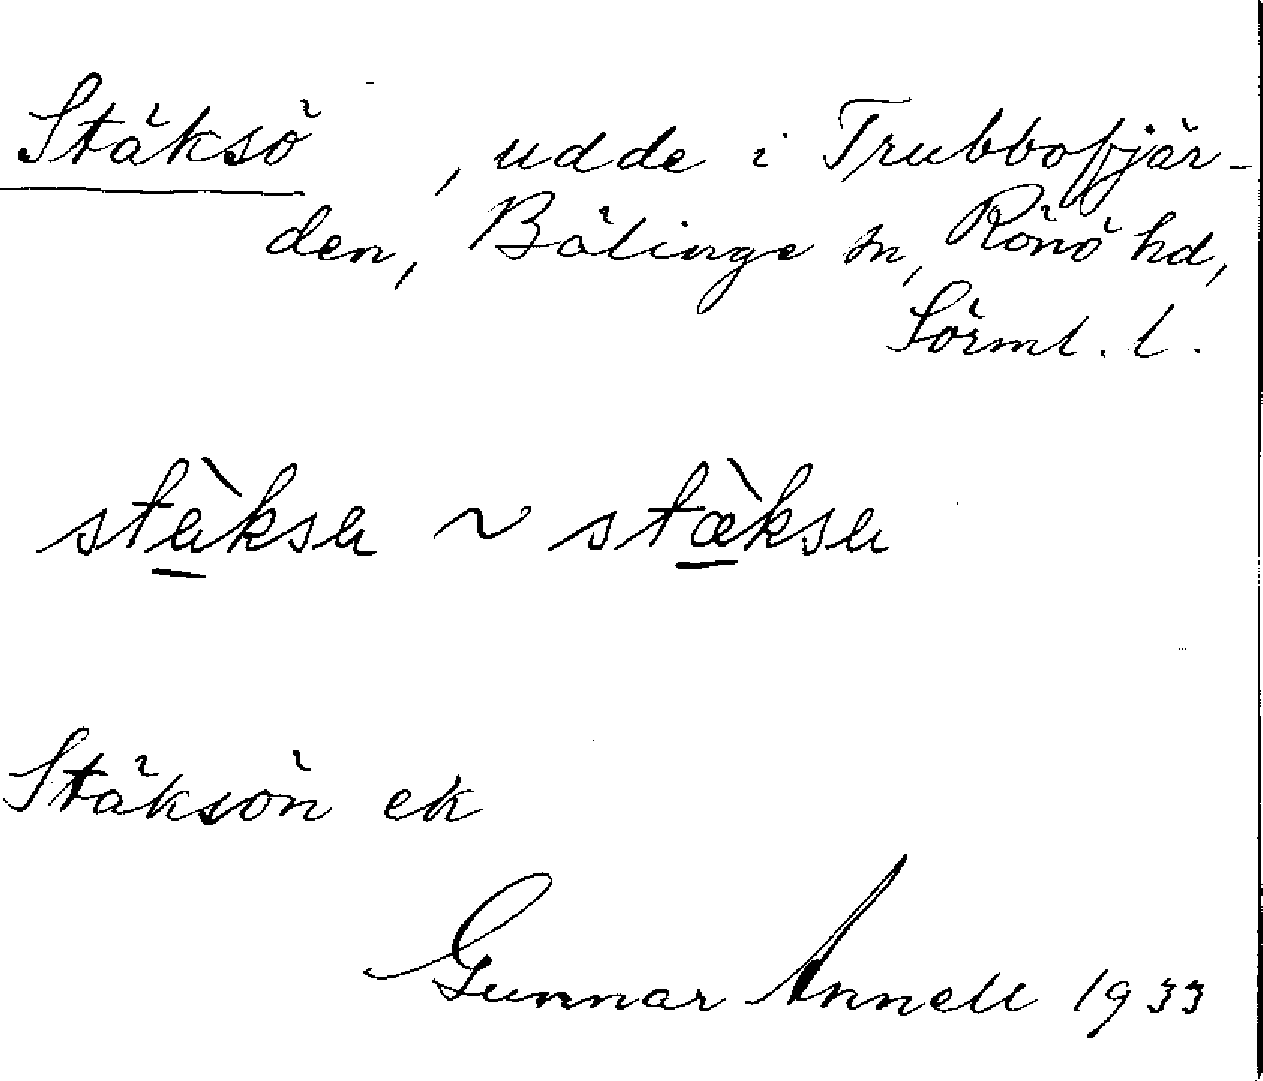 Stäksö, udde i Trubbofjär-
den, Bälinge sn, Rönö hd,
Sörml. l.
stàksа ~ stæ̀ksa
Stäksön ek
Gunnar Annell 1933